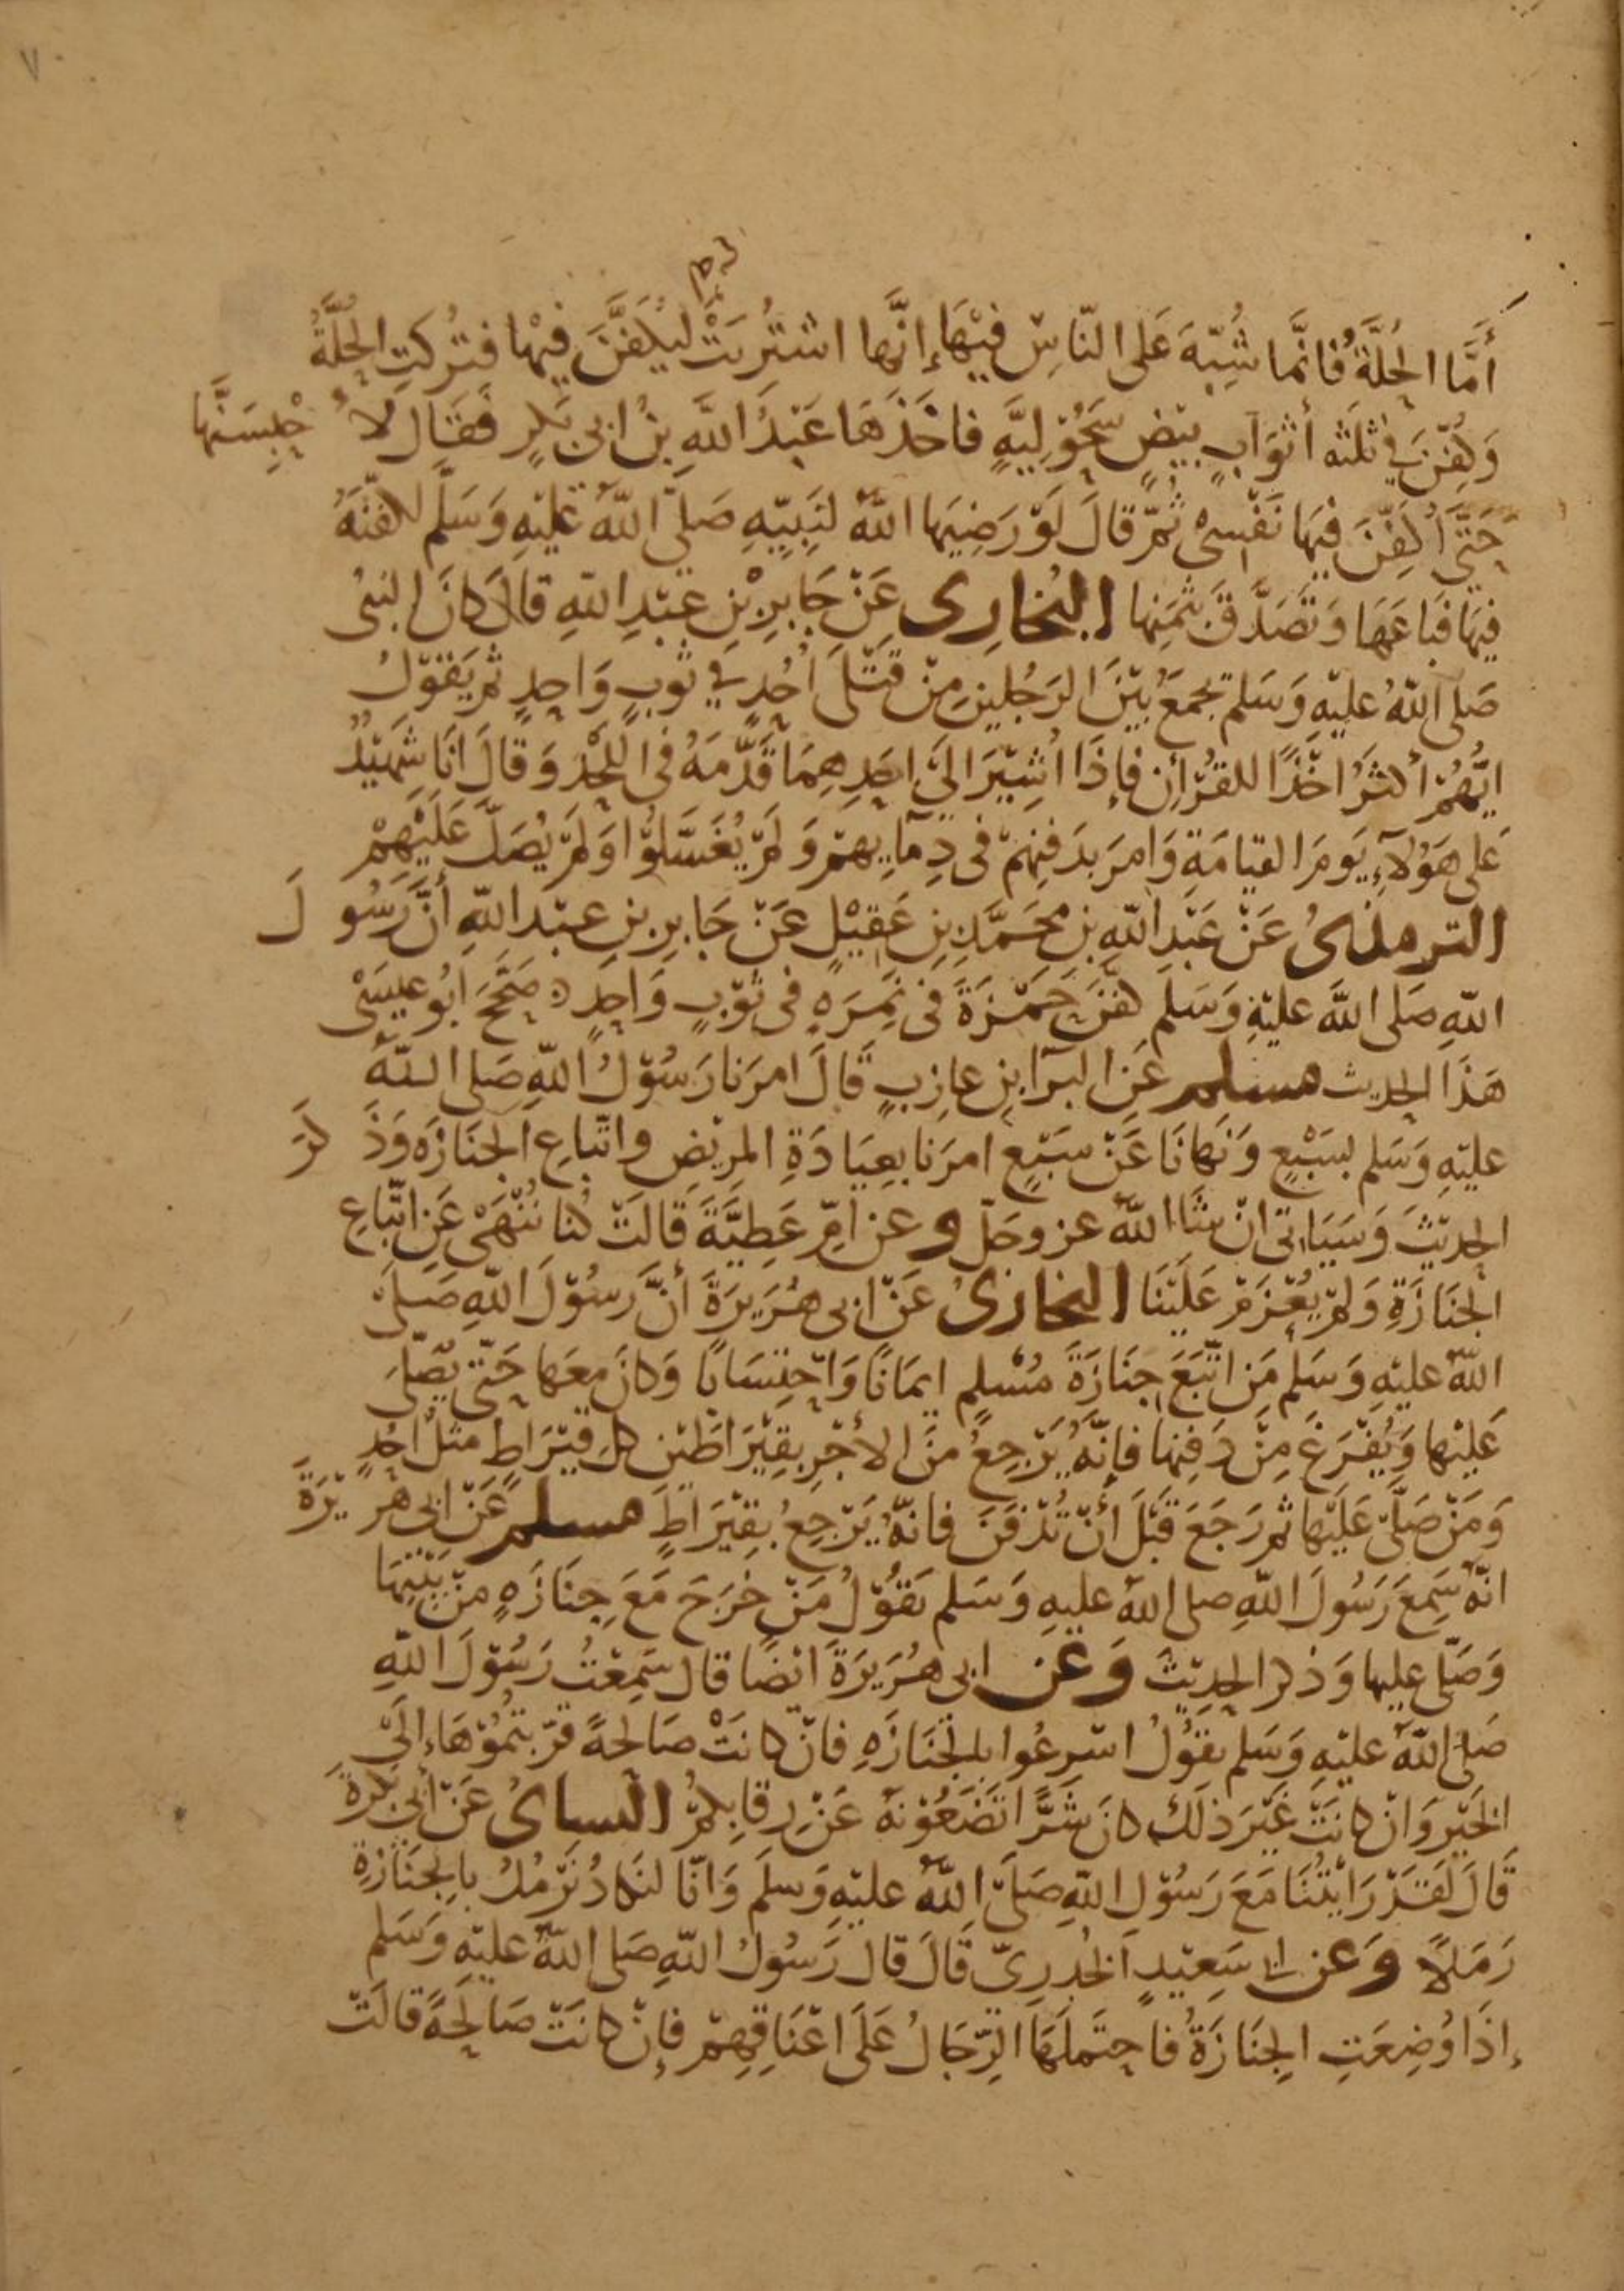 ٧
له
أَمَّا الحُلَّةُ فَانَّما شُبِّهَ عَلى النّاسِ فيْهَا إنَّها اشتُرِيَتْ ليُكَفَّنَ فيْها فتُركتِ الحُلَّةُ
وَكُفّنَ في ثلثه أثوَابٍ بيْضٍ سَحُوْلِيَّهٍ فاخَذَهَا عَبْدُ اللَّهِ بنُ ابى بَكرٍ فَقَال لاُحْبِسَنَّها
حَتَّى اُكَفِّنَ فيهَا نَفْسىْ ثُمّ قالَ لَوْ رَضِيَها اللّهُ لنَبِيّهِ صَلّى اللّهُ عليْهِ وَسَلَّم لكفّنَهُ
فيهَا فبَاعَهَا وَتصَدَّقَ بثمَنِها البُخارِى عَنْ جَابرِ بْنِ عَبْدِ اللّهِ قالَ كانَ النبىُ
صَلى اللّهُ عليْهِ وَسَلم يجمَعُ بيْنَ الرَجُلينِ مِنْ قتْلَى اُحُدٍ في ثوبٍ وَاحِدٍ ثم يَقوْلُ
ايُّهُمْ أكثرُ اخْذًا للقرْأنِ فإذَا اُشِيْرَ اليَ احَدِهِمَا قَدَّمَهُ فى اللحْدِ وَقالَ انَا شَهيْدٌ
عَلى هَؤلآءِ يَومَ القيامَةِ وَامرَ بدَفنِهمْ فى دِمآيِهمْ وَلمْ يُغسَّلوْا وَلمْ يُصَلَّ عَلَيْهِمْ
الترمذىُ عَنْ عَبْدِ اللّهِ بن محَمَّدِ بنِ عَقيْلٍ عَنْ جَابرِ بنِ عبْد اللّهِ أنَّ رَسُولَ
اللّهِ صَلى اللّهَ عليْهِ وَسَلم كفّنَ حَمْزَةَ فى نمِرَهٍ فى ثوْبٍ وَاحِدٍ صَحَّحَ ابُو عيسَىْ
هَذَا الحديث مسلم عَنِ البرَآ بنِ عازبٍ قَالَ امرَنا رَسُوْلُ اللّهِ صَلى اللّهُ
عليْهِ وَسَلم بسَبْعٍ وَنَهانَا عَنْ سَبْعٍ امرَنا بعِيَادَةِ المريْضِ واتّباعِ الجنَازَه وَذكرَ
الحديْثَ وَسَيَاتى انْ شَا اللّهُ عز وجَلّ وعن اُمِّ عَطِيَّةَ قَالَتْ كُنا نُنْهَىْ عَنِ اتّباعِ
الجنَازَةِ وَلمْ يُعْزَمْ عَلَيْنَا البُخارىُ عَنْ ابى هُرَيرَةَ أنَّ رَسُوْلَ اللّهِ صَلى
اللّهُ عليْهِ وَسَلم مَنِ اتّبَعَ جِنَازَةَ مُسْلمٍ ايمَانًا وَاحْتِسَابًا وَكانَ معَها حَتّى يُصَلّىَ
عَليْها وَيُفْرَغَ مِنْ دَفنِها فإنّهُ يَرْجِعُ منَ الأجْرِ بقِيْرَاطَيْن كل قيْرَاطٍ مثلُ اُحُدٍ
وَمَنْ صَلَّىْ عَلَيْها ثم رَجَعَ قَبْلَ أنْ تُدْفَنَ فانّهُ يَرْجِعُ بقِيْرَاطٍ مسلم عَنْ ابى هُريْرَةَ
انّهُ سَمِعَ رَسُولَ اللّهِ صلى اللّهُ عليهِ وَسَلم يَقوُلُ مَنْ خَرَجَ مَعَ جِنَازَهٍ منْ بَيْتِهَا
وَصَلّى عليها وَذكر الحديْثَ وَعَن ابى هُرَيرَةَ ايْضًا قال سَمِعْتُ رَسُوْلَ اللّهِ
صَلى اللّهُ عليْهِ وَسَلم يَقوُلُ اسْرِعُوا بالجَنَازَهِ فانْ كانَتْ صَالحةً قرّبتُمُوْهَا إلَى
الخيْرِ وَانْ كانَتْ غَيْرَ ذلكَ كانَ شَرًّا تَضَعُوْنهُ عَنْ رقابكمْ النسائىُ عَنْ أبى بَكرَةَ
قَالَ لَقَدْ رَايْتُنَا مَعَ رَسُوْلِ اللّهِ صَلَّى اللّهُ عليْهِ وَسلَم وَانّا لنَكادُ نَرْمُلُ بالجنَازةِ
رَمَلاً وَعن ابى سَعِيْدٍ الخُدرِىّ قَالَ قال رَسُولُ اللّهِ صَلى اللّهُ عليْهِ وَسَلم
إذَا وُضِعَتِ الجنَازَةُ فاحتمَلَهَا الرّجَالُ عَلَى اعْنَاقِهِمْ فإنْ كانَتْ صَالحةً قالَتْ